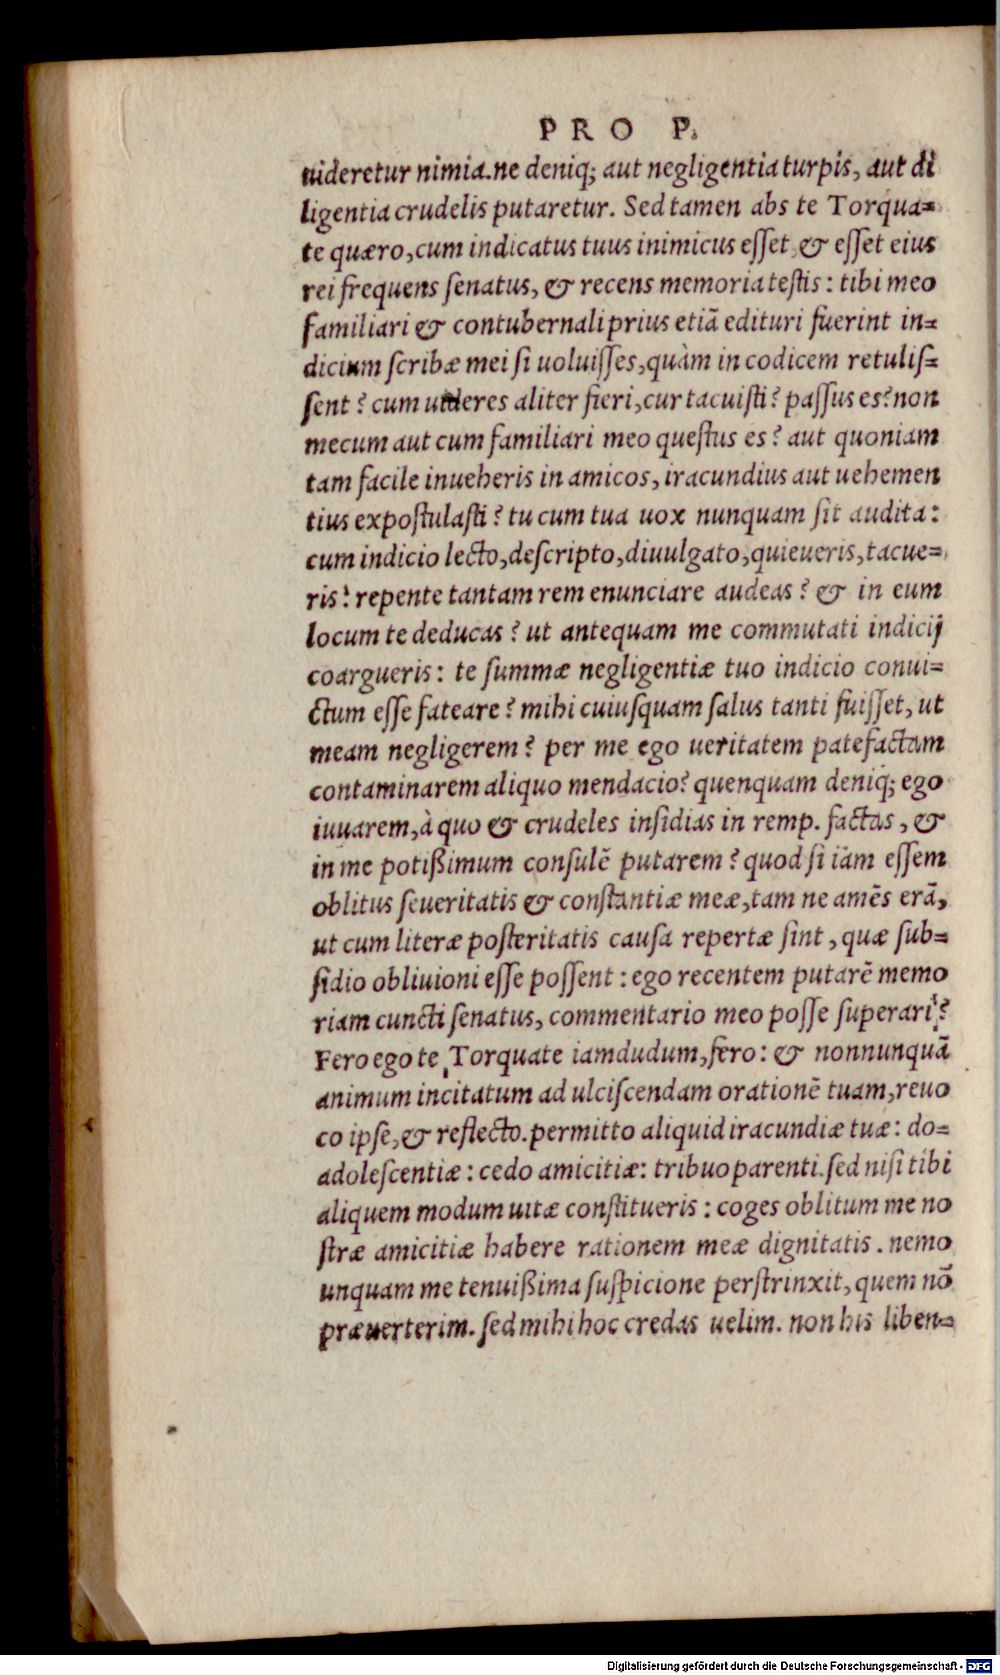 PRO P.
uideretur nimia.ne deniq; aut negligentia turpis, aut di
ligentia crudelis putaretur. Sed tamen abs te Torqua=
te quæro, cum indicatus tuus inimicus eſſet, & eſſet eius
rei frequens ſenatus, & recens memoria teſtis: tibi meo
familiari & contubernali prius etiã edituri fuerint in=
dicium ſcribæ mei ſi uoluiſſes, quàm in codicem retuliſ=
ſent? cum uideres aliter fieri, cur tacuiſti? paſſus es? non
mecum aut cum familiari meo queſtus es? aut quoniam
tam facile inueheris in amicos, iracundius aut uehemen
tius expoſtulaſti? tu cum tua uox nunquam ſit audita:
cum indicio lecto, deſcripto, diuulgato, quieueris, tacue=
ris: repente tantam rem enunciare audeas? & in eum
locum te deducas? ut antequam me commutati indicij
coargueris: te ſummæ negligentiæ tuo indicio conui=
ctum eſſe fateare? mihi cuiuſquam ſalus tanti fuiſſet, ut
meam negligerem? per me ego ueritatem patefactam
contaminarem aliquo mendacio? quenquam deniq; ego
iuuarem, à quo & crudeles inſidias in remp. factas, &
in me potißimum conſulẽ putarem? quod ſi iàm eſſem
oblitus ſeueritatis & conſtantiæ meæ, tam ne amẽs erã,
ut cum literæ poſteritatis cauſa repertæ ſint, quæ ſub=
ſidio obliuioni eſſe poſſent: ego recentem putarẽ memo
riam cuncti ſenatus, commentario meo poſſe ſuperari?
Fero ego te, Torquate iamdudum, fero: & nonnunquã
animum incitatum ad ulciſcendam orationẽ tuam, reuo
co ipſe, & reflecto. permitto aliquid iracundiæ tuæ: do=
adoleſcentiæ: cedo amicitiæ: tribuo parenti. ſed niſi tibi
aliquem modum uitæ conſtitueris: coges oblitum me no
ſtræ amicitiæ habere rationem meæ dignitatis. nemo
unquam me tenuißima ſuſpicione perſtrinxit, quem nõ
præuerterim. ſed mihi hoc credas uelim. non his liben=
Digitalisierung gefördert durch die Deutsche Forschungsgemeinschaft - DFG